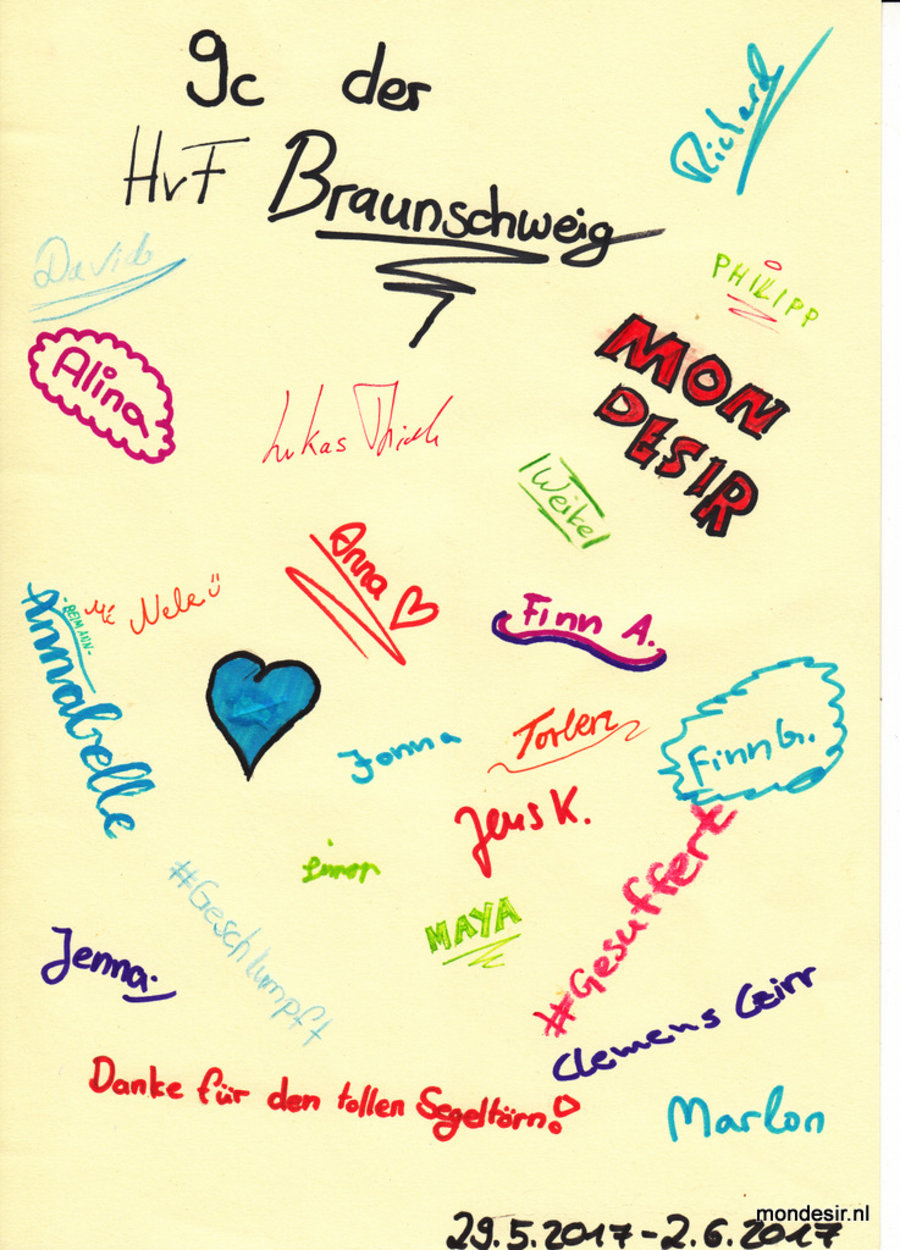 9c der
HvF Braunschweig
Richard
David
PHILIPP
Alina
MON
DESIR
Lukas
Weikel
Anna
Nele
Annabelle
Finn A.
Jonna
Torben
Finn G.
Jens K.
Simon
MAYA
#Geschlumpft
#Gesuffert
Jenna
Clemens
Danke für den tollen Segeltörn!
Marlon
mondesir.nl
29.5.2017-2.6.2017